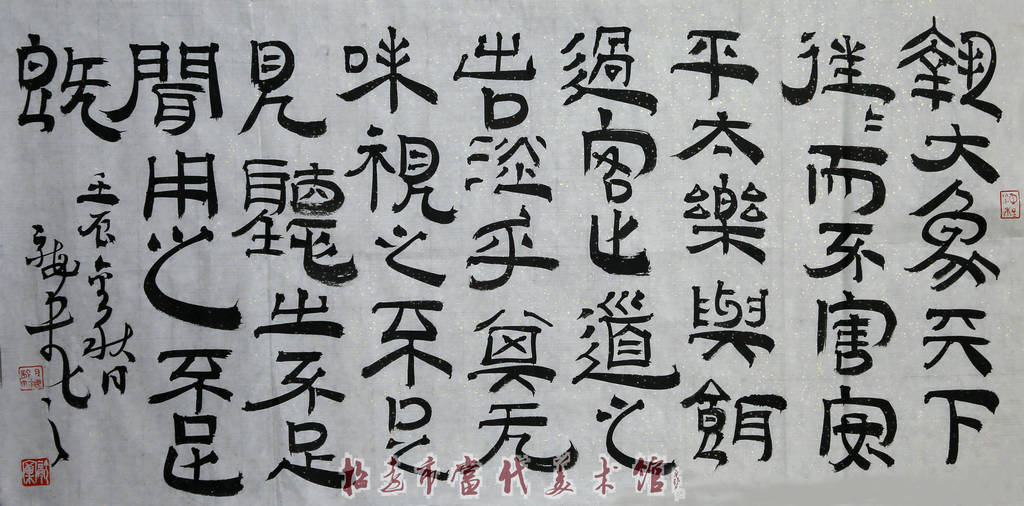 執大象天下
往〻而不害安
平太樂與餌
過客止道之
出口淡乎其无
味視之不足
見聽之不足
聞用之不足
既
壬辰金秋月
招远市當代美术馆